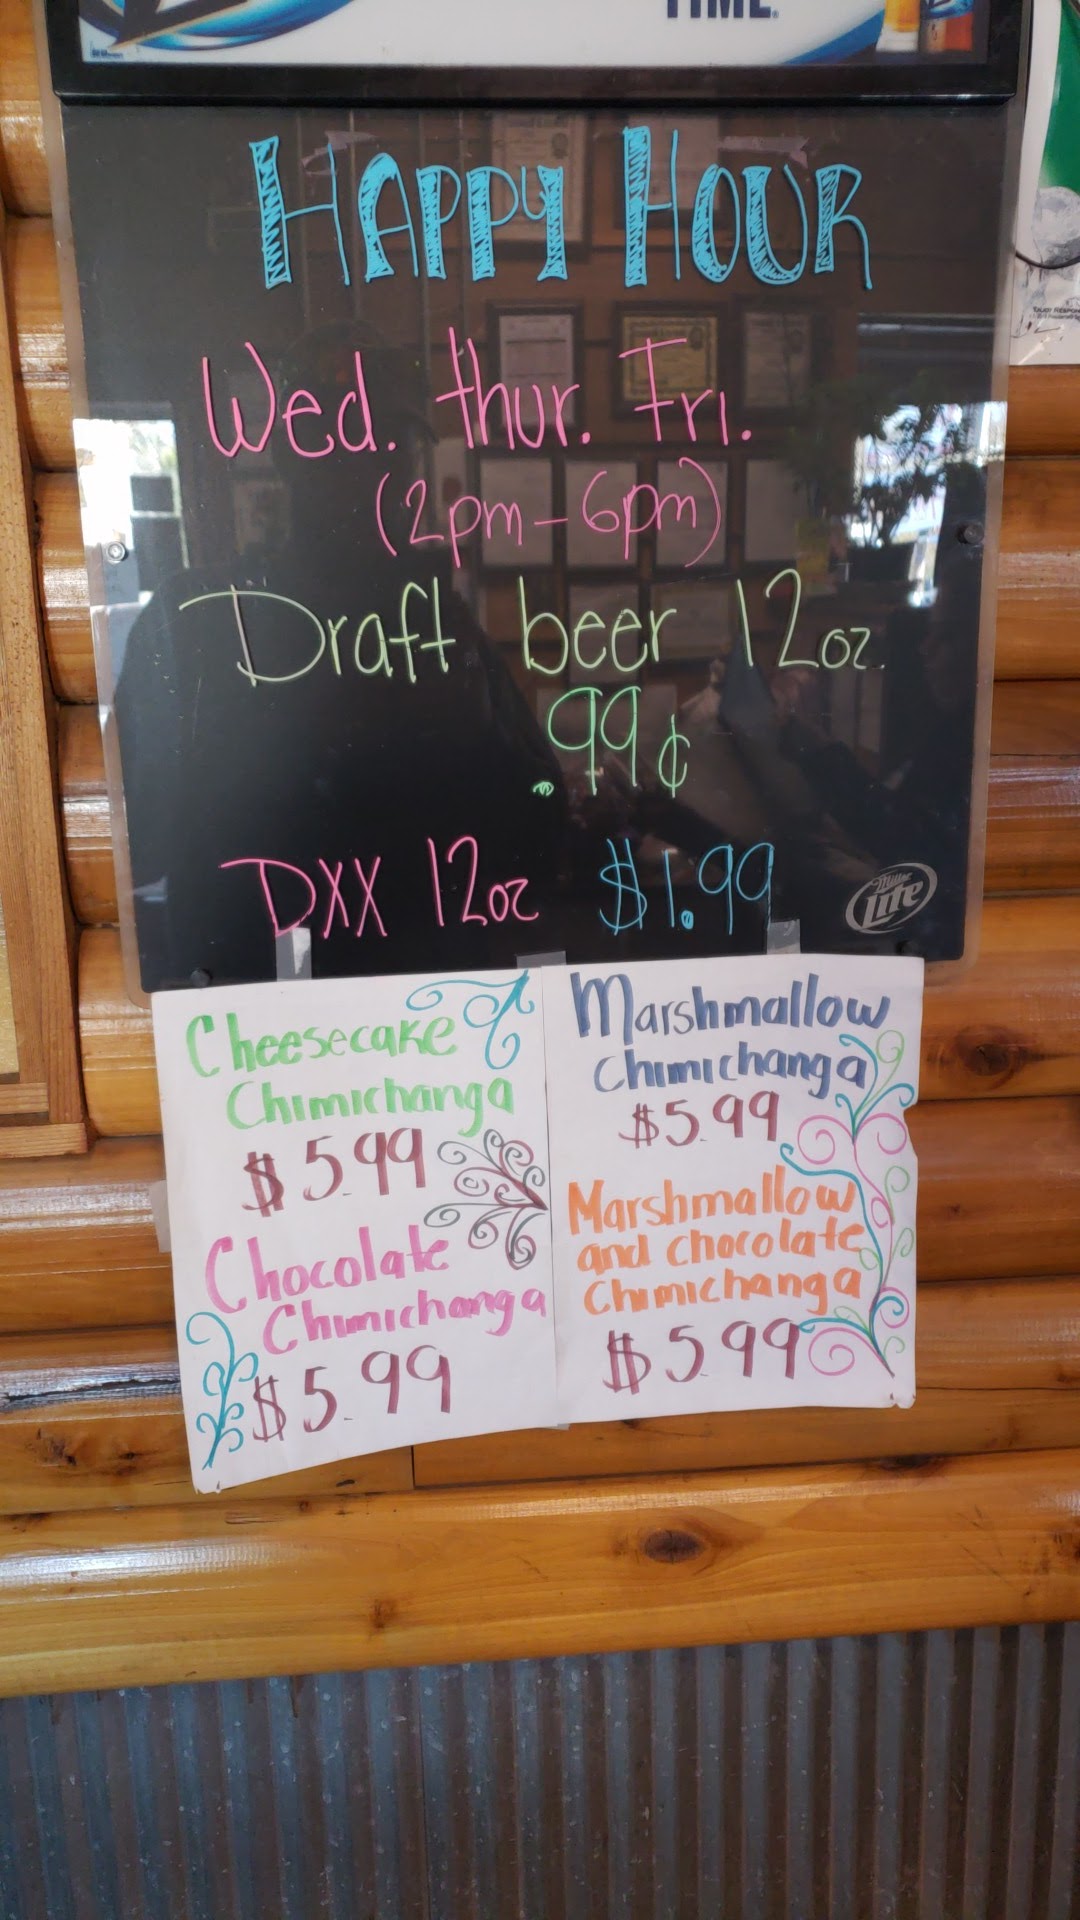 TIME.
HAPPY HOUR
Wed. thur. Fri.
(2pm - 6pm)
Draft beer 12oz.
.99¢
DXX 12oz $1.99
Miller
Lite
Cheesecake
Chimichanga
$5.99
Chocolate
Chimichanga
$5.99
Marshmallow
Chimichanga
$5.99
Marshmallow
and chocolate
Chimichanga
$5.99